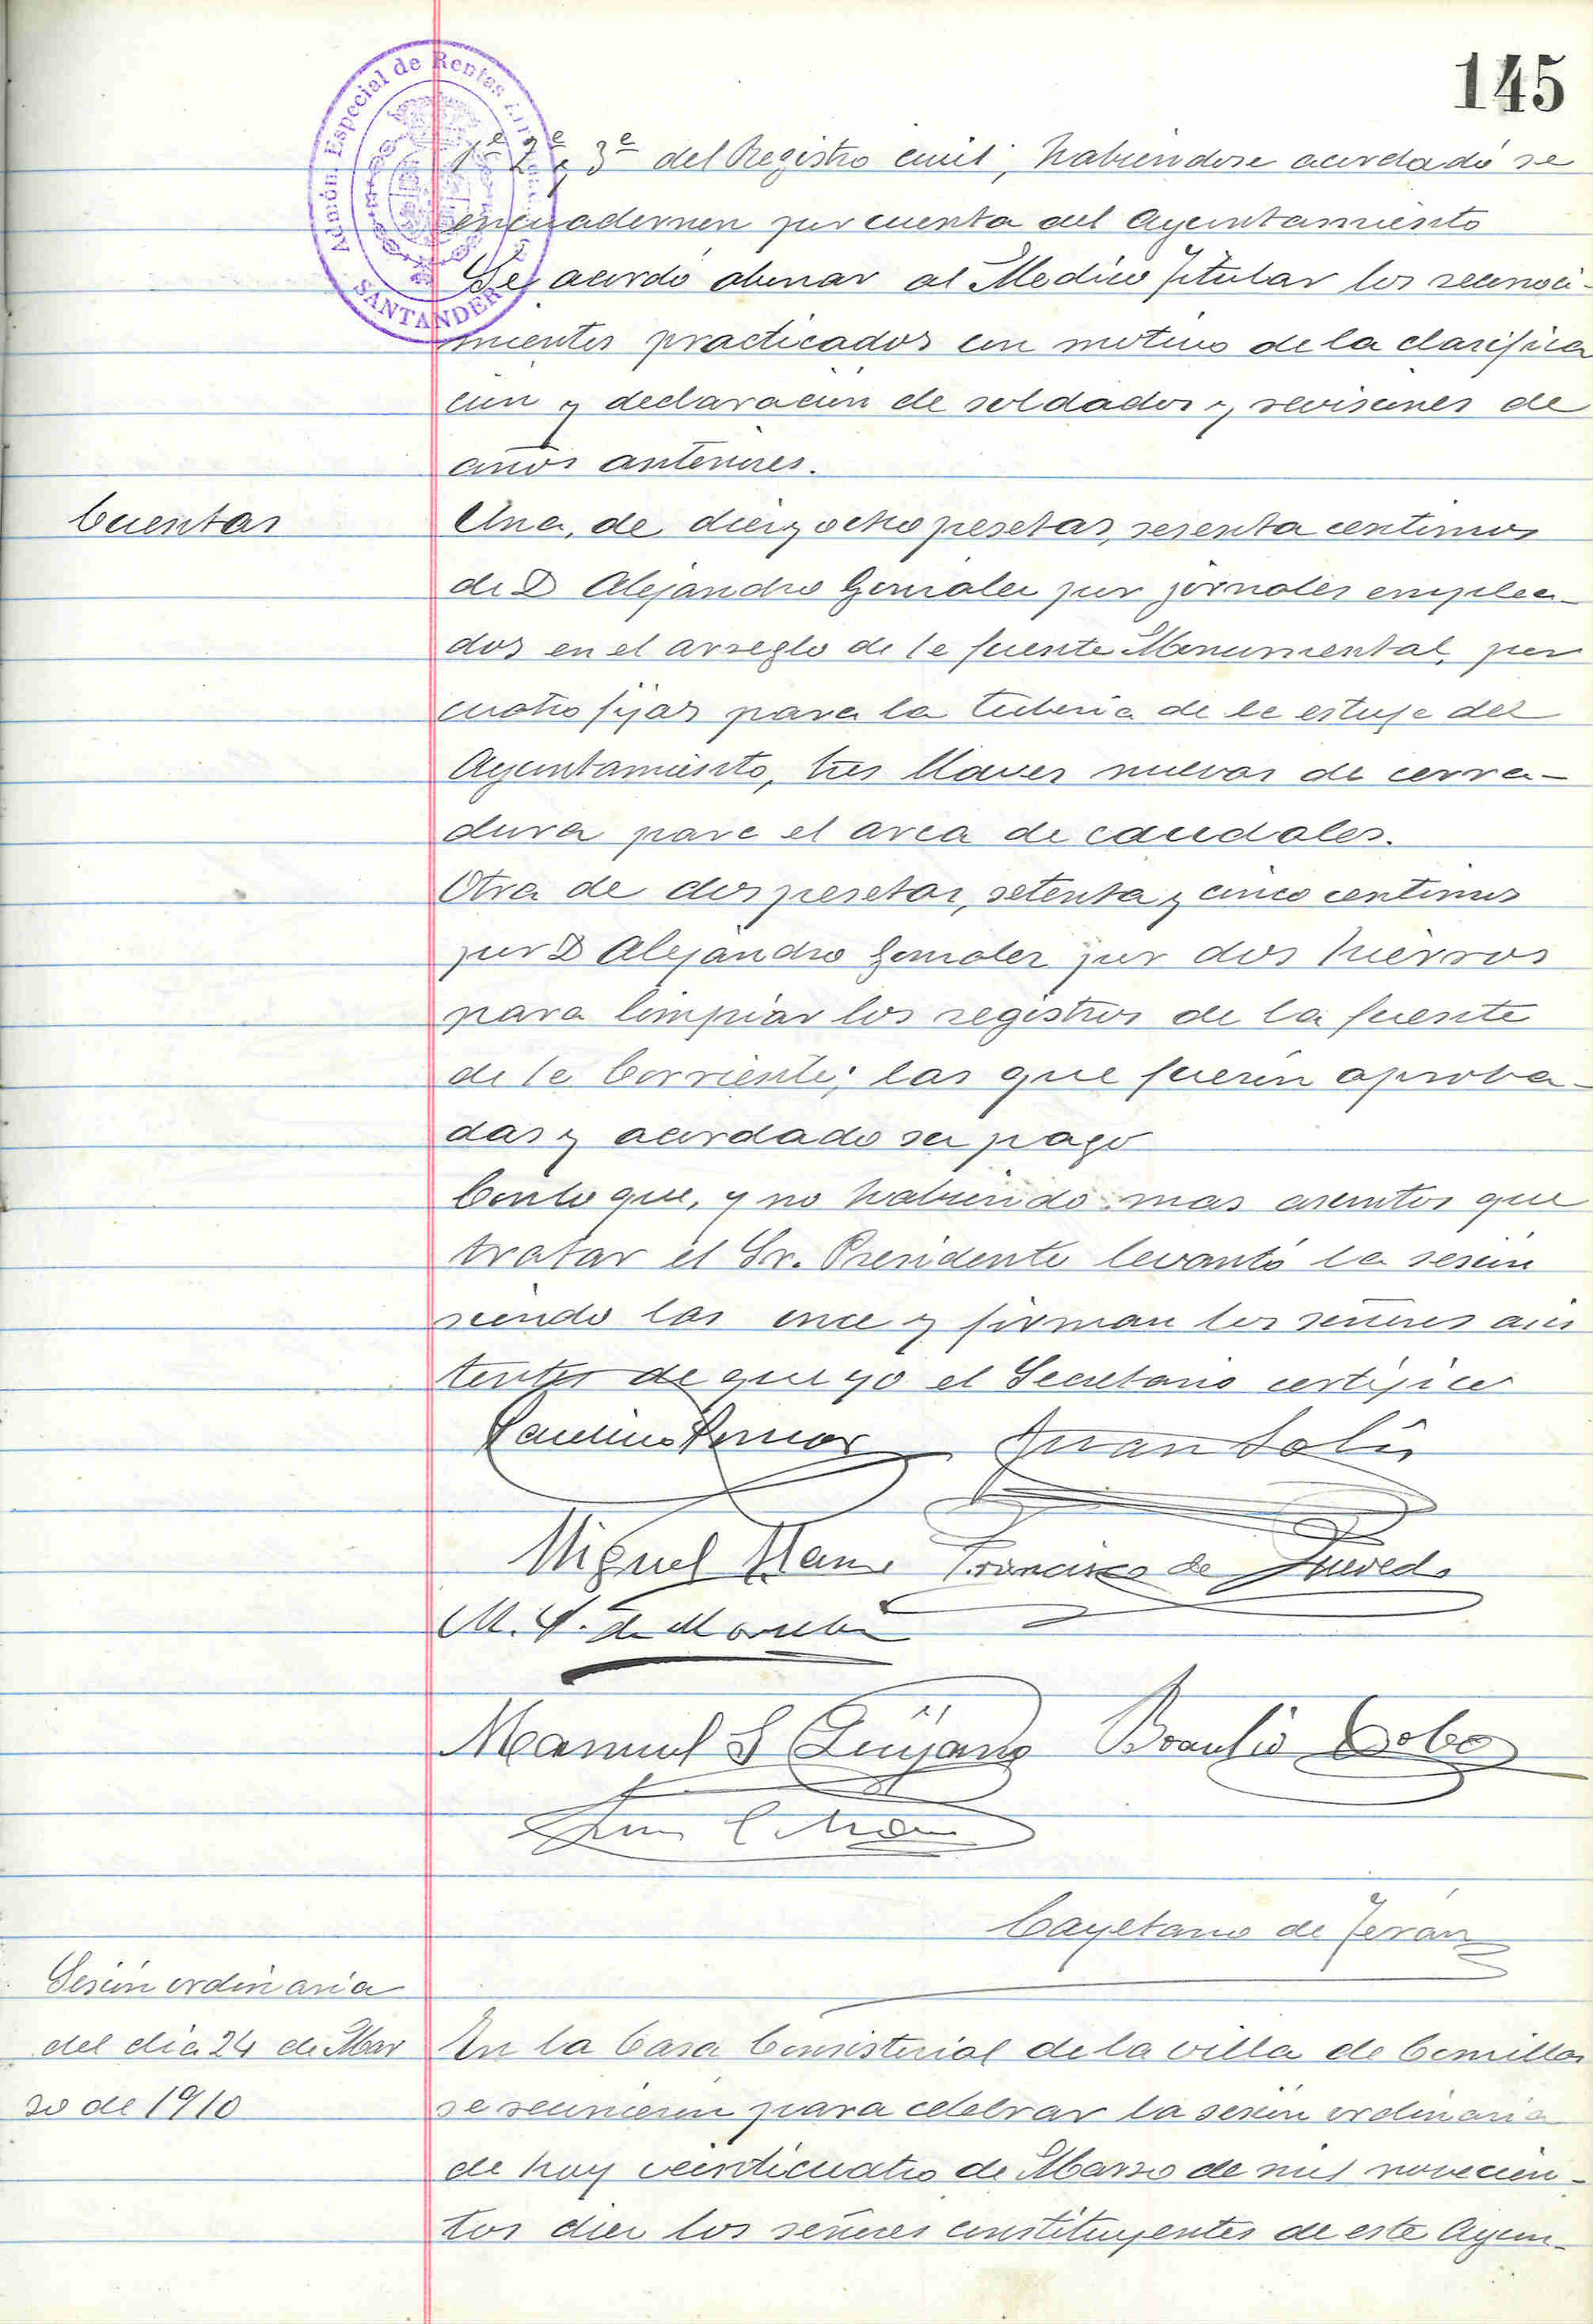 145
Admón. Especial de Rentas
SANTANDER
1ª 2ª y 3ª del Registro civil; habiendose acordado se
encuadernen por cuenta del Ayuntamiento
Se acordó abonar al Medico Titular los reconoci-
mientos practicados con motivo de la clasifica
cion y declaración de soldados y revisiones de
años anteriores.
Cuentas
Una, de diez y ocho pesetas, sesenta centimos
de D Alejandro Gonzalez por jornales emplea-
dos en el arreglo de la fuente Monumental, por
cuatro fijas para la tuberia de la estufa del
Ayuntamiento, tres llaves nuevas de cerra-
dura para el arca de caudales.
Otra de dos pesetas, setenta y cinco centimos
por D Alejandro Gonzalez por dos hierros
para limpiar los registros de la fuente
de la Corriente; las que fueron aproba-
das y acordado su pago
Con lo que, y no habiendo mas asuntos que
tratar el Sr. Presidente levantó la sesion
siendo las once y firman los señores asis
tentes de que yo el Secretario certifico
Juan Solís
Miguel Francisco de Quevedo
M. de
Manuel S Quijano Braulio Cobo
Cayetano de Terán
Sesion ordinaria
del dia 24 de Mar
zo de 1910
En la Casa Consistorial de la villa de Comillas
se reunieron para celebrar la sesion ordinaria
de hoy veinticuatro de Marzo de mil novecien-
tos diez los señores constituyentes de este Ayun-